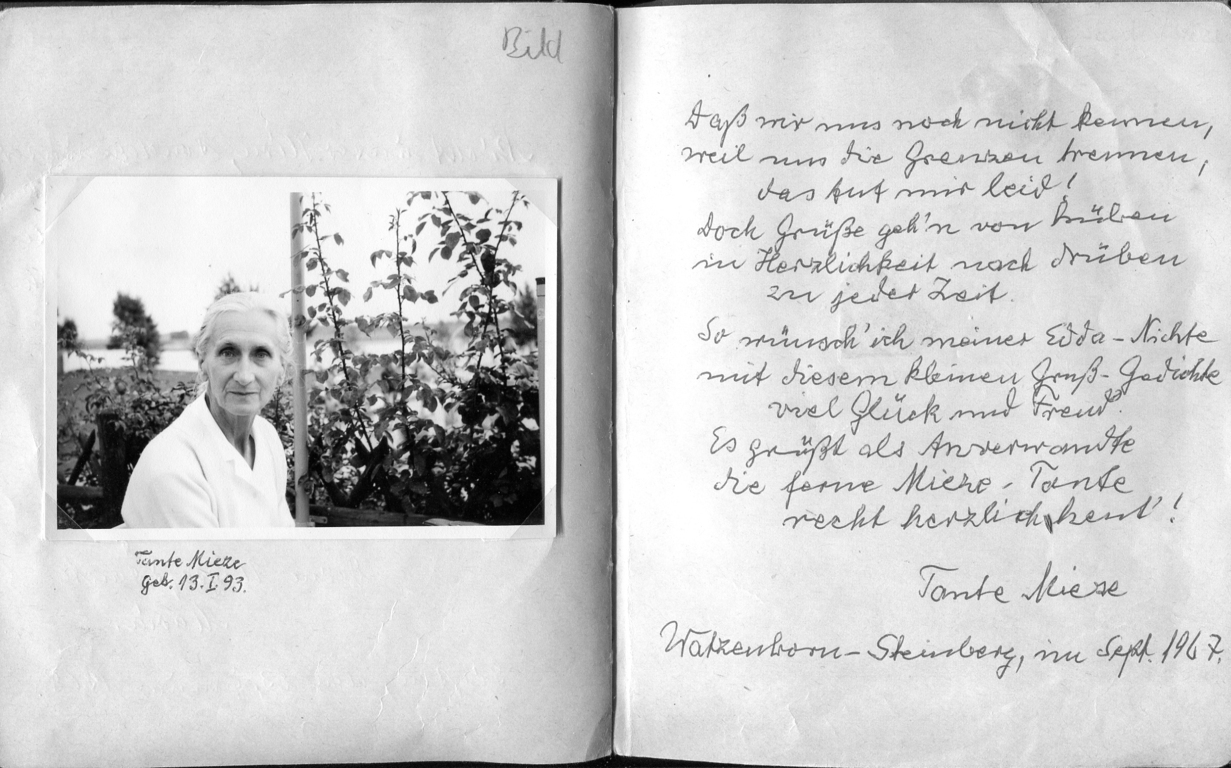 Bild
Tante Mieze
geb. 13. I. 93.
Daß wir uns noch nicht kennen,
weil uns die Grenzen trennen,
das tut mir leid!
Doch Grüße geh'n von hüben
in Herzlichkeit nach drüben
zu jeder Zeit.
So wünsch' ich meiner Edda-Nichte
mit diesem kleinen Gruß-Gedichte
viel Glück und Freud'.
Es grüßt als Anverwandte
die ferne Mieze-Tante
recht herzlich heut'!
Tante Mieze
Watzenborn-Steinberg, im Sept. 1967.